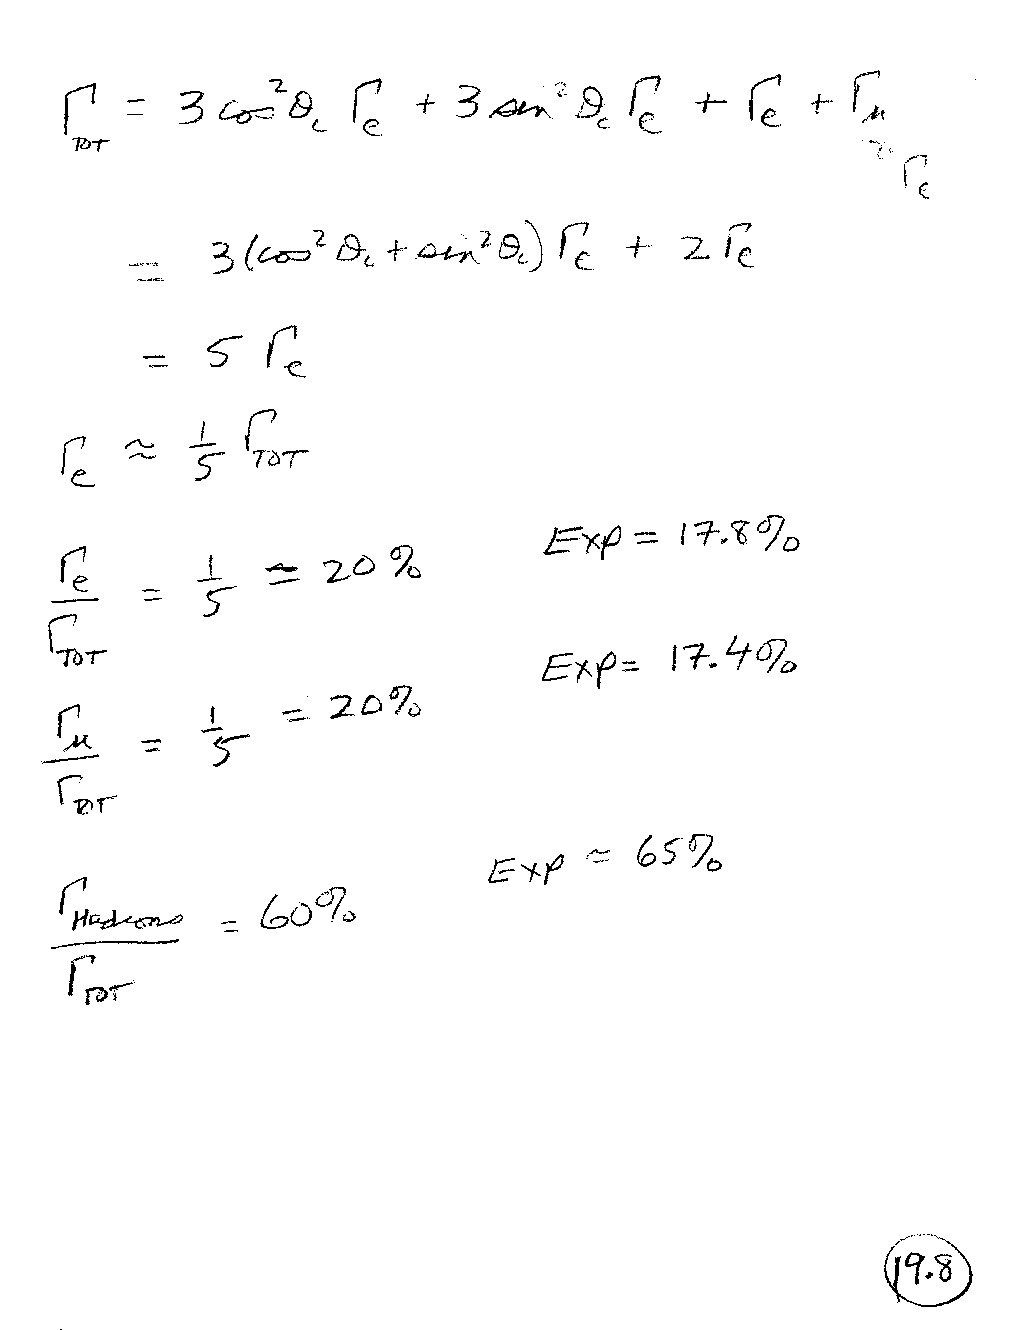 Γ_TOT = 3 cos²θ_c Γ_e + 3 sin²θ_c Γ_e + Γ_e + Γ_μ
≈ Γ_e
= 3(cos²θ_c + sin²θ_c) Γ_e + 2 Γ_e
= 5 Γ_e
Γ_e ≈ 1/5 Γ_TOT
Γ_e/Γ_TOT = 1/5 = 20% Exp = 17.8%
Γ_μ/Γ_TOT = 1/5 = 20% Exp = 17.4%
Γ_Hadrons/Γ_TOT = 60% Exp ≈ 65%
19.8